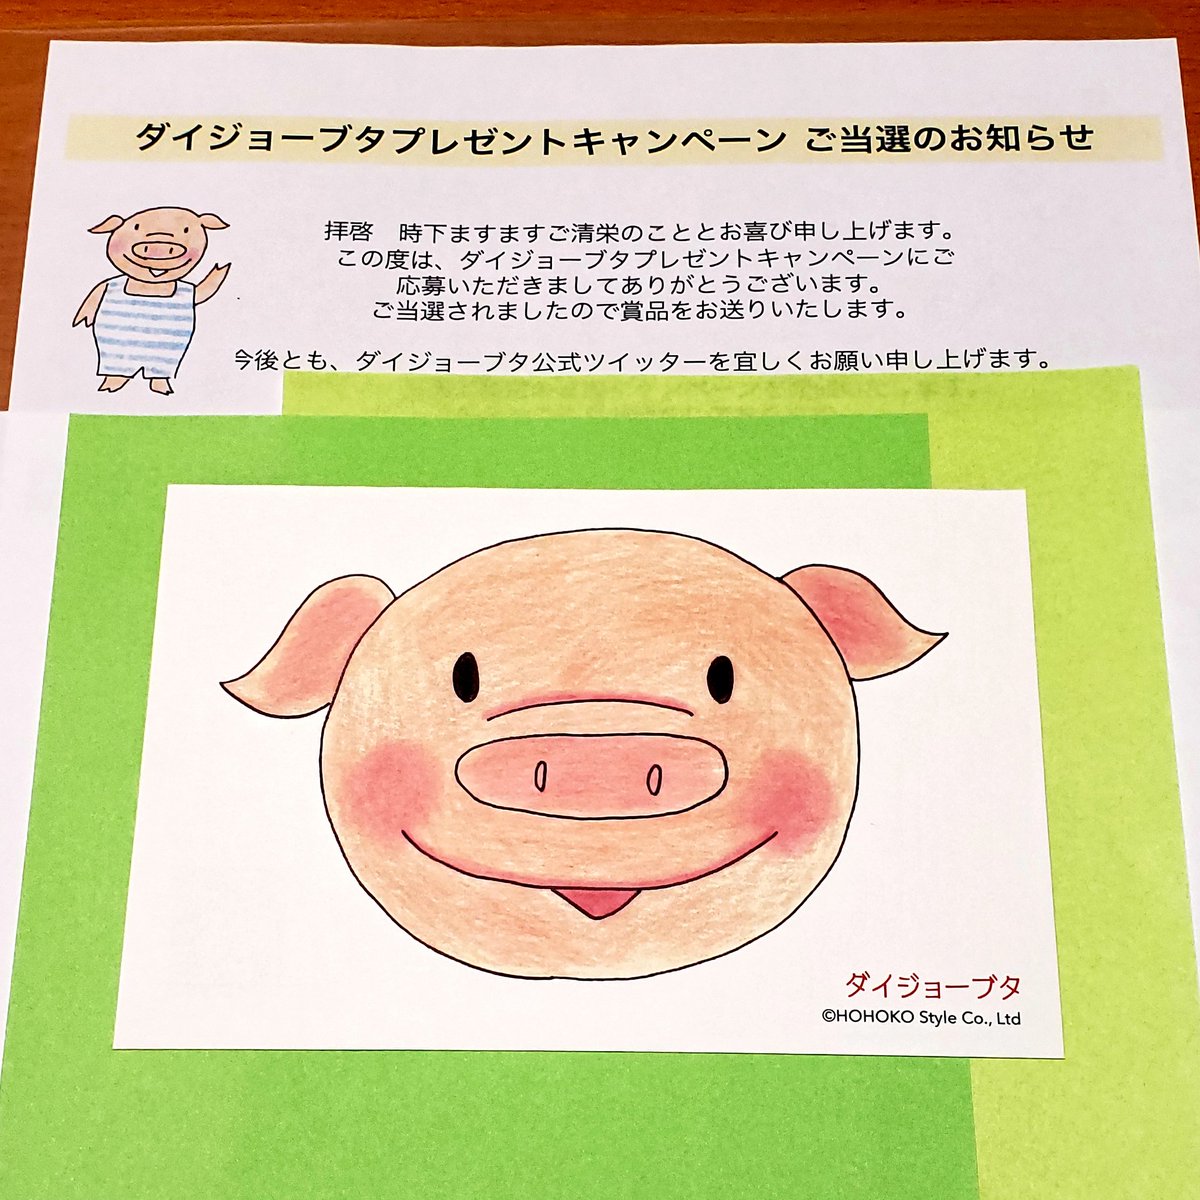 ダイジョーブタプレゼントキャンペーン ご当選のお知らせ
拝啓　時下ますますご清栄のこととお喜び申し上げます。
この度は、ダイジョーブタプレゼントキャンペーンにご
応募いただきましてありがとうございます。
ご当選されましたので賞品をお送りいたします。
今後とも、ダイジョーブタ公式ツイッターを宜しくお願い申し上げます。
ダイジョーブタ
©HOHOKO Style Co., Ltd